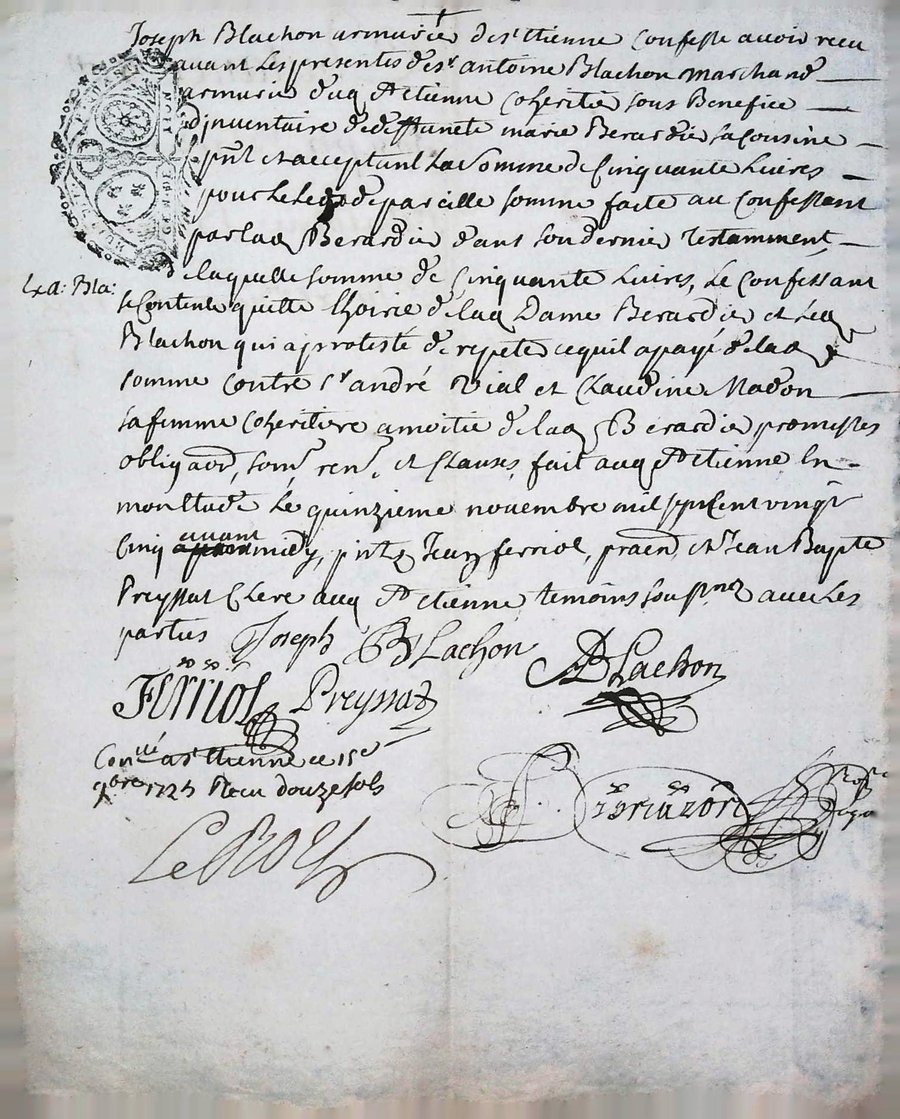 Joseph Blachon armurier de st etienne confesse avoir recu
avant les presentes de sr antoine Blachon marchand
armurier dud st etienne coheritier sous Benefice
d'inventaire de deffunete marie Berardier sa cousine
pnt et acceptant La somme de Cinquante Livres
pour Le Legs de pareille somme faite au Confessant
par lad Berardier dans son dernier testamment
de laquelle somme de Cinquante Livres, Le Confessant
Lad: Bla:
se Contente quitte Lhoirie de lad Dame Berardier et Led
Blachon qui a protesté de repeter ce quil a payé de lad
somme contre sr andré Vial et Claudine Madon
sa femme coheritiere a moitié de lad Berardier promesses
obligaons, soms, rens, et Clauses, fait aud st etienne En
moultade Le quinzieme novembre mil sept cent vingt
Cinq avant midy, pnts Jean ferriol, praen, et sr Jean Bapte
Preyssat Clerc aud st etienne temoins sousnez avec Les
parties Joseph Blachon
ABLachon
Ferriol Preyssat
Conllé a st Etienne ce 15e
9bre 1725 Recu douze sols